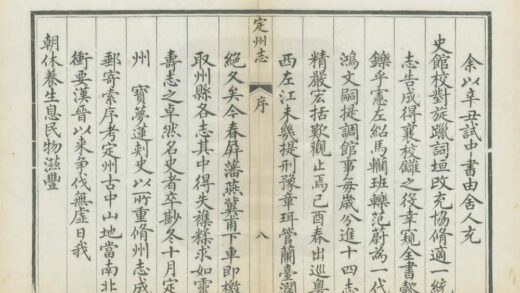 余以辛丑試中書由舍人充
史館校對旋躐詞垣改充協脩適一統
志告成得襄校讎之役幸窺全書歎
鑠乎憲左紹馬轥班轢范蔚為一代
鴻文嗣提調館事每歲分進十四志
精嚴宏括歎觀止焉己酉春出巡粵
西左江未幾提刑豫章珥管蘭臺濶
定州志 序 八
絕久矣今春屏藩燕冀甫下車即檄
取州縣各志其中得失襍糅求如靈
壽志之卓然名史者卒尟冬十月定
州 寶夢蓮刺史以所重脩州志成
郵寄索序考定州古中山地當南北
衝要漢晉以來爭伐無虛日我
朝休養生息民物滋豐